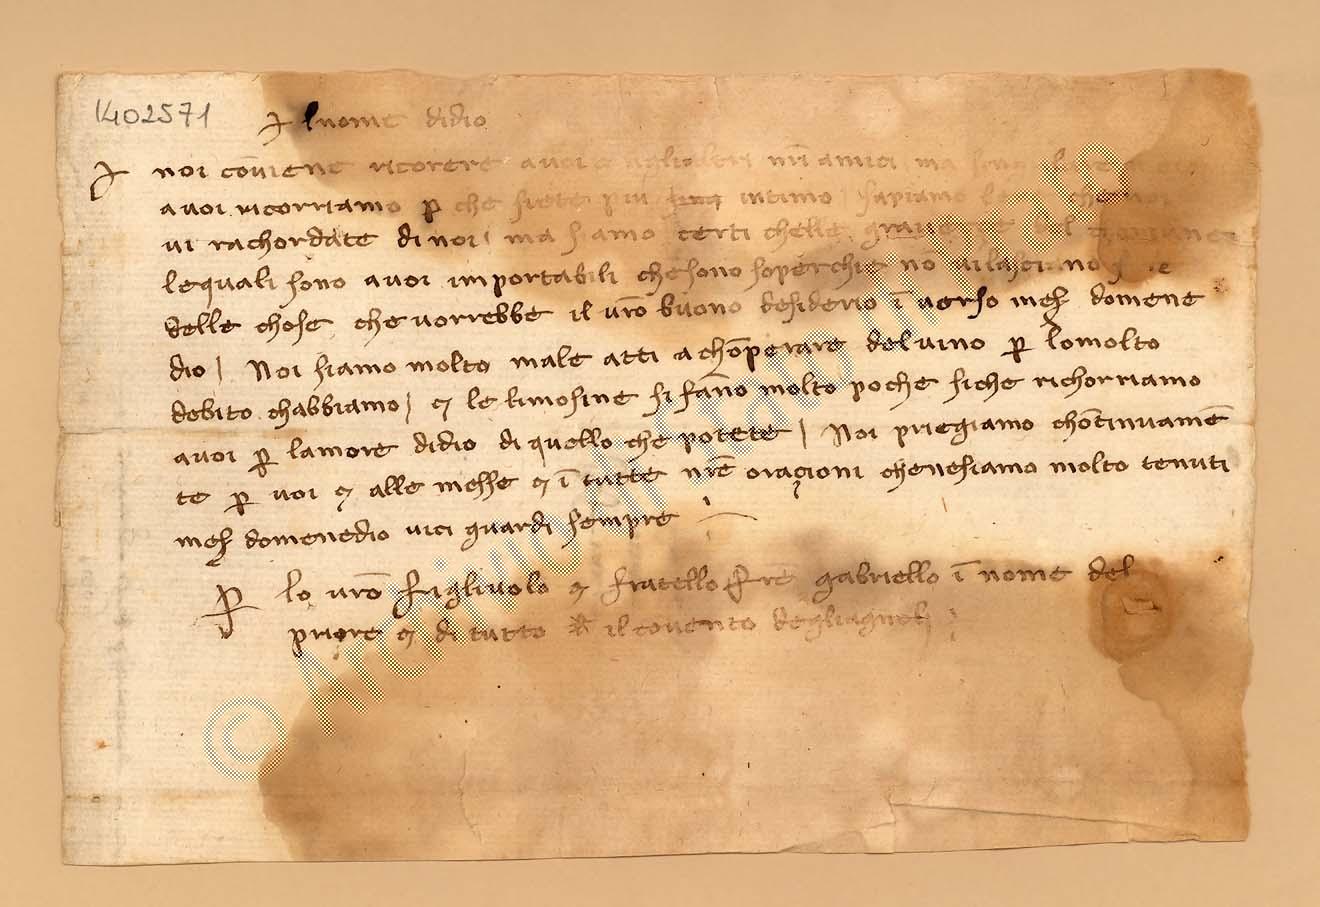 1402571
lnome didio
noi cōviene ricorere avoi e aglialtri nr̄i amici ma
avoi ricorriamo ꝑ che siete più intimo sapiamo bene che noi
vi rachordate di noi / ma siamo certi chelle gravezze del
lequali sono avoi importabili che sono soperchie no vi lasciano
delle chose che vorrebbe il vr̄o buono desiderio ī verso meß domene
dio / Noi siamo molto male atti achōperare del vino ꝑ lo molto
debito chabbiamo / e le limosine si fāno molto poche siche richorriamo
avoi ꝑ lamore didio di quello che potete / Noi priegiamo chōtinuamē
te ꝑ voi e alle messe e ī tutte nr̄e oraçioni chenesiamo molto tenuti
meß domenedio vici guardi sempre
ꝑ lo vr̄o figlivolo e fratello frē gabriello ī nome del
priore e di tutto il covento degliagnoli
© Archivio di Stato di Prato